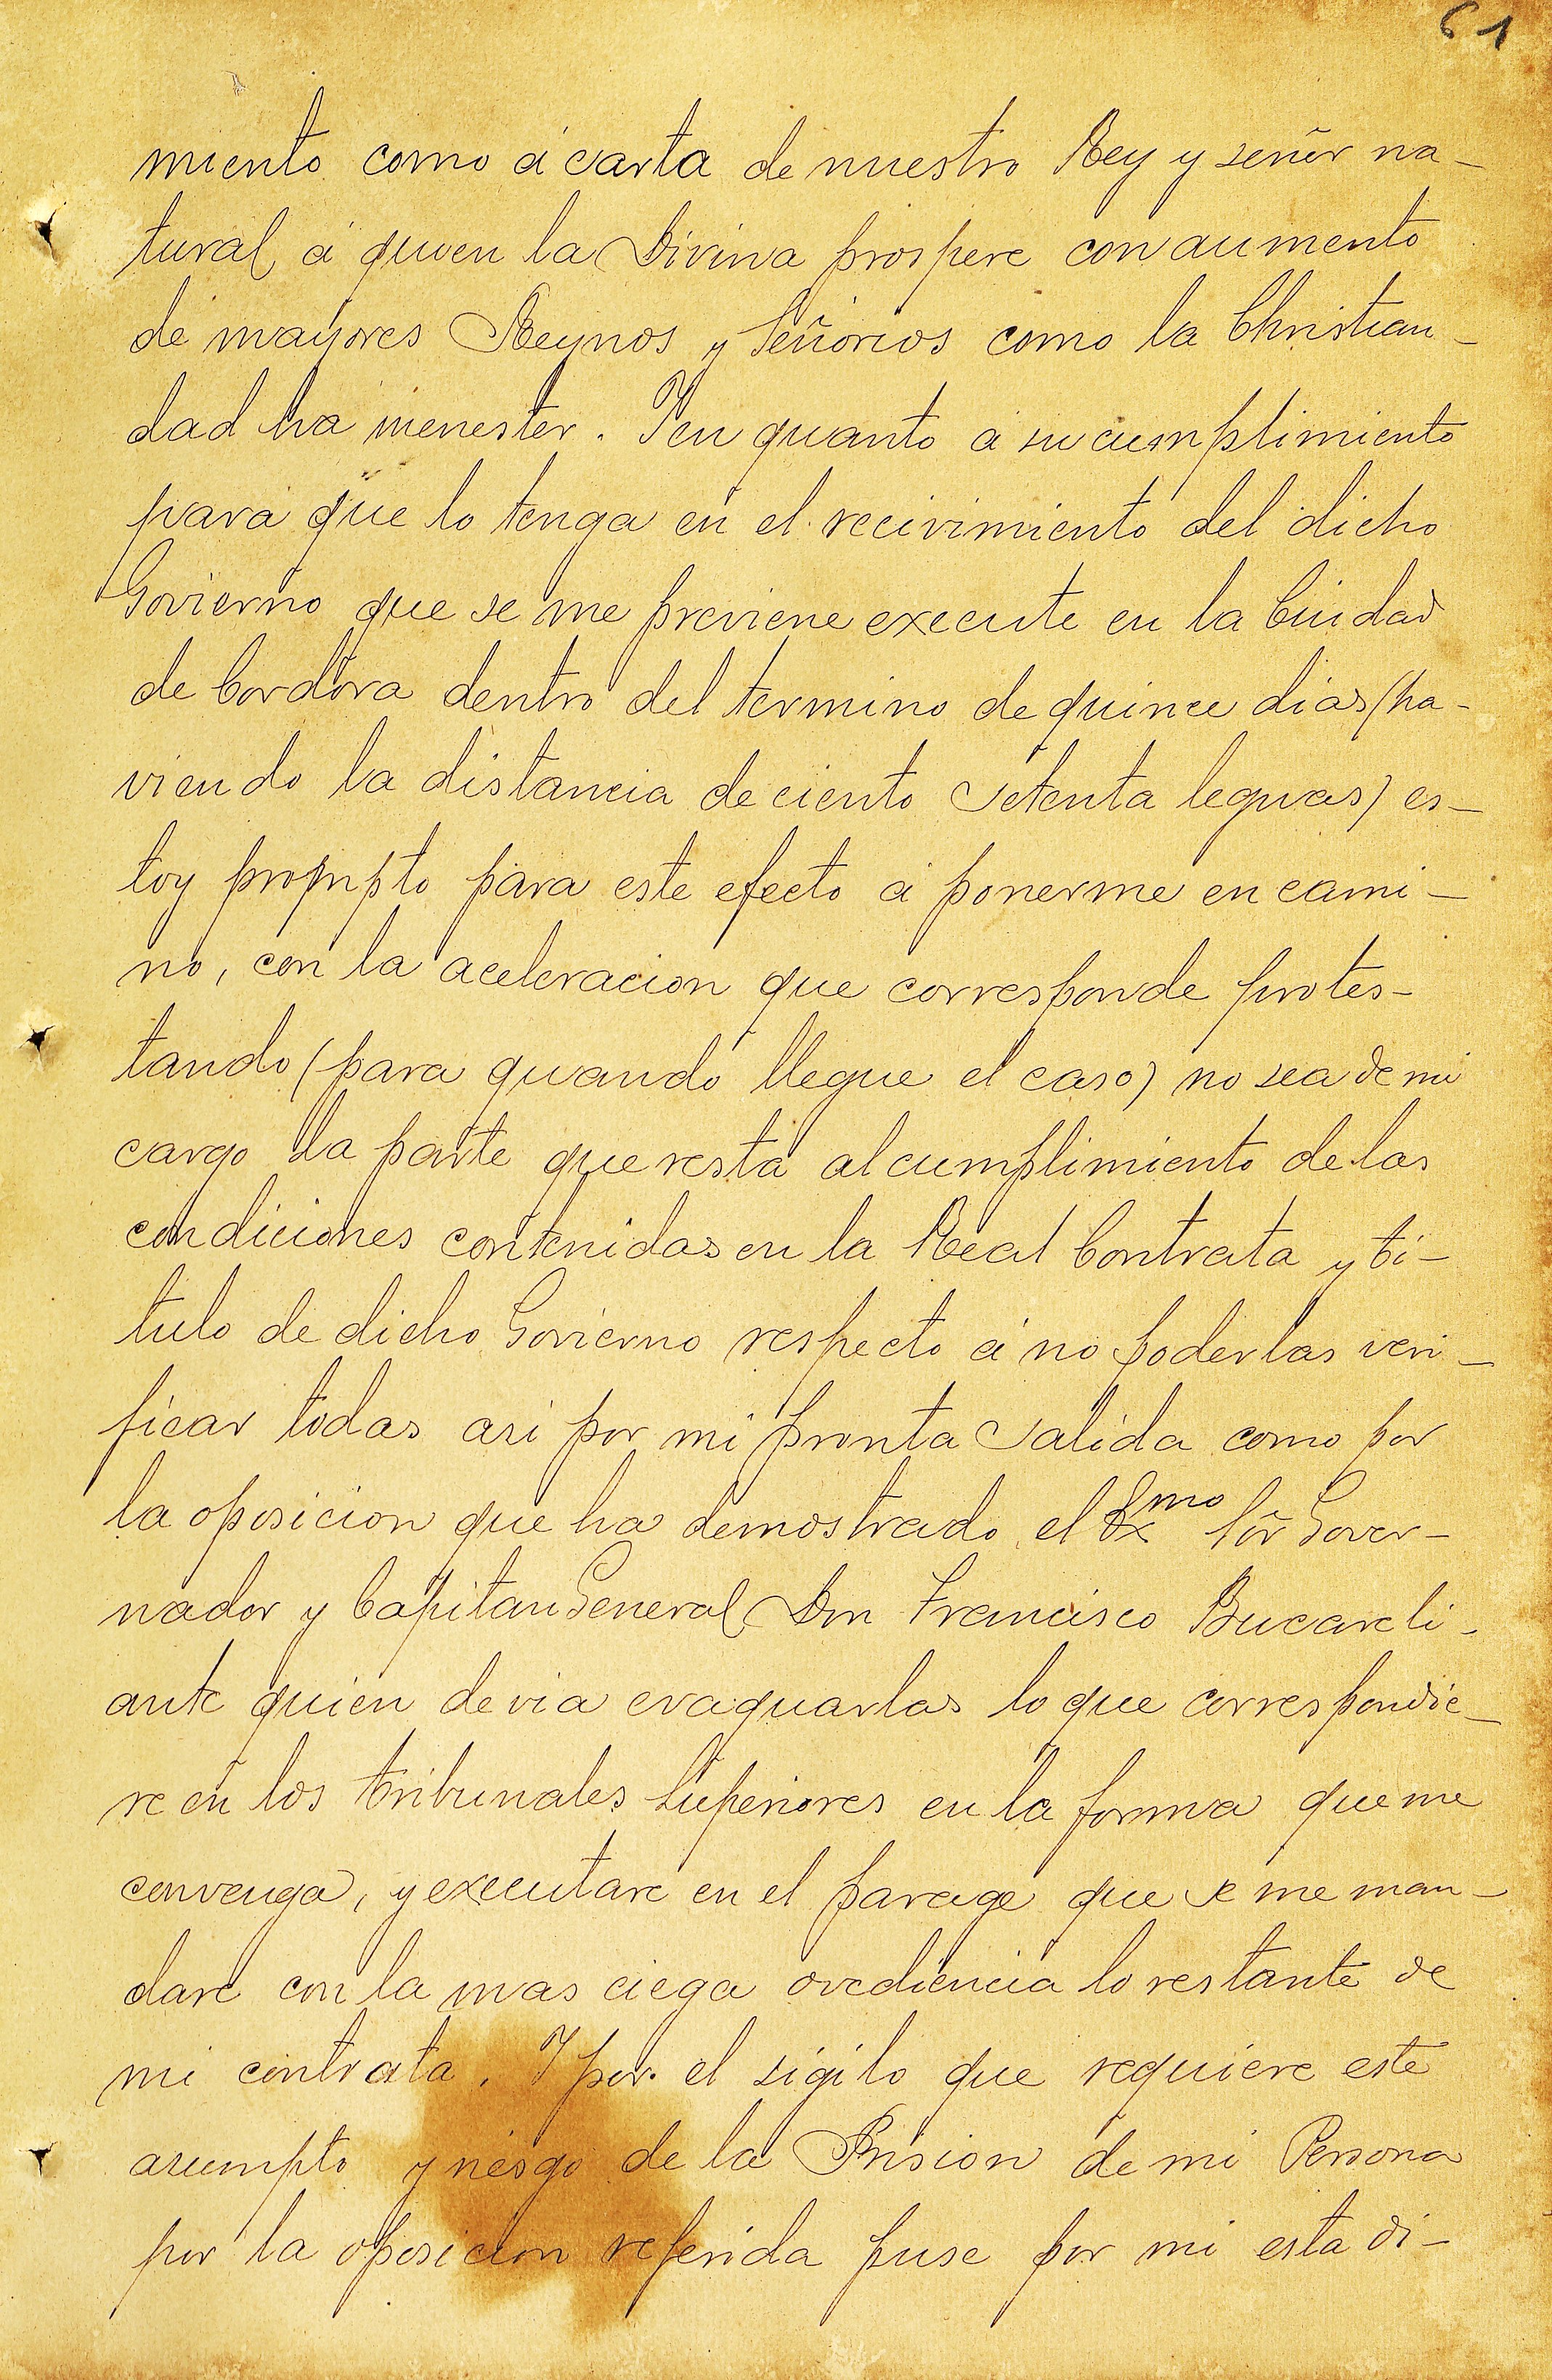 61
miento como á carta de nuestro Rey y señor na-
tural á quien la Divina prospere con aumento
de mayores Reynos y Señorios como la Christian-
dad ha menester. Y en quanto á su cumplimiento
para que lo tenga en el recivimiento del dicho
Govierno que se me previene execute en la Ciudad
de Cordova dentro del termino de quince dias (ha-
viendo la distancia de ciento setenta leguas) es-
toy prompto para este efecto á ponerme en cami-
no, con la aceleracion que corresponde protes-
tando (para quando llegue el caso) no sea de mi
cargo la parte que resta al cumplimiento de las
condiciones contenidas en la Real Contrata y tí-
tulo de dicho Govierno respecto á no poderlas veri-
ficar todas asi por mi pronta salida como por
la oposicion que ha demostrado el Exmo Sõr Gover-
nador y Capitan General Don Francisco Bucareli-
ante quien devia evaquarlas lo que correspondie-
re en los tribunales Superiores en la forma que me
convenga, y executare en el parage que se me man-
dare con la mas ciega ovediencia lo restante de
mi contrata. Y por el sigilo que requiere este
asumpto y riesgo de la Prision de mi Persona
por la oposicion referida puse por mi esta di-